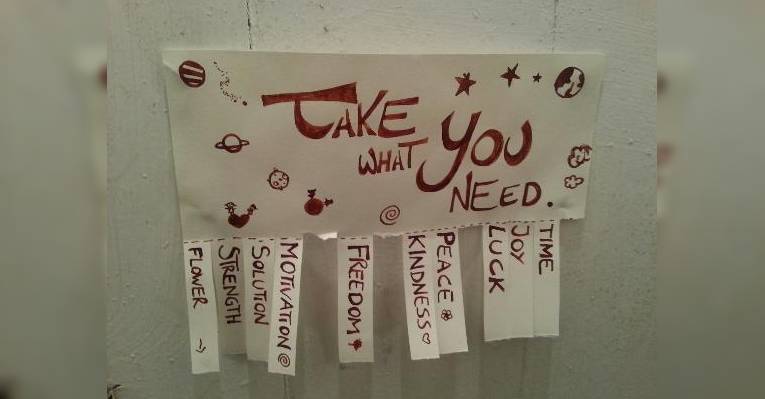 TAKE
WHAT YOU
NEED.
FLOWER →
STRENGTH
SOLUTION
MOTIVATION
FREEDOM
KINDNESS
PEACE
LUCK
JOY
TIME